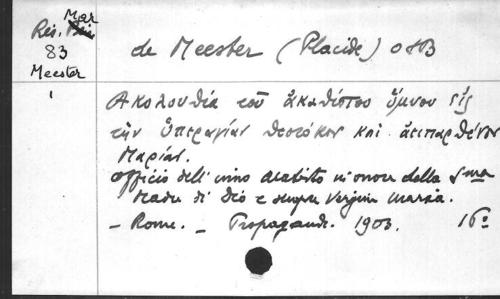 Mar
Res.
83
Meester
1
de Meester (Placide) OSB
Ακολουθία τοῦ ἀκαθίστου ὕμνου εἰς
τὴν ὑπεραγίαν θεοτόκον καὶ ἀειπαρθένον
Μαρίαν.
Officio dell'inno acatisto in onore della Sma
Madre di Dio e sempre Vergine Maria.
- Rome. - Propagande. 1903. 16º